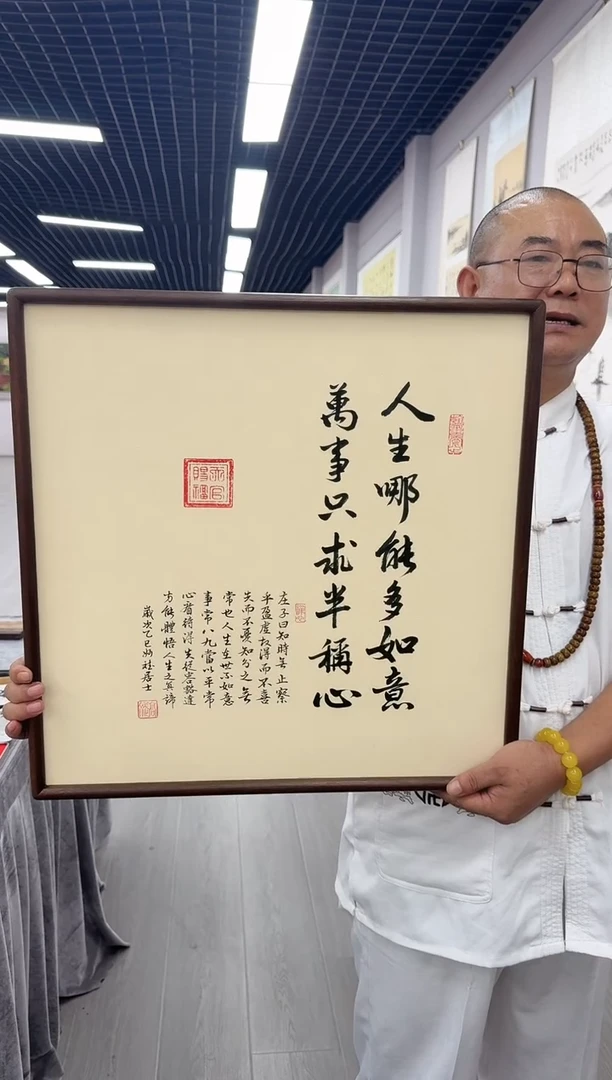 人生哪能多如意
萬事只求半稱心
庄子曰知時無止察
乎盈虛故得而不喜
失而不憂知分之無
常也人生在世不如意
事常八九當以平常
心看待得失從容豁達
方能體悟人生之真諦
歲次乙巳妙社居士
天官賜福